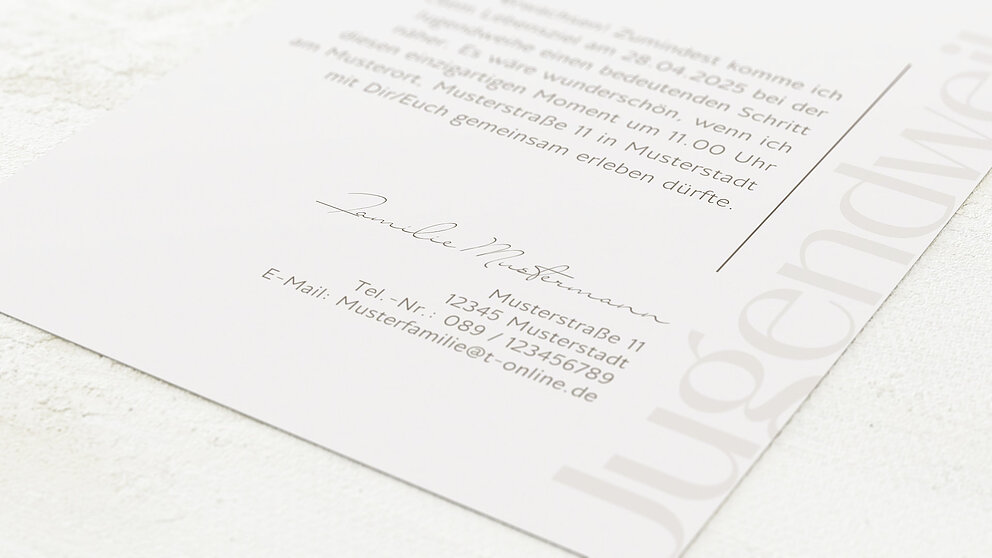 Erwachsen! Zumindest komme ich
dem Lebensziel am 28.04.2025 bei der
Jugendweihe einen bedeutenden Schritt
näher. Es wäre wunderschön, wenn ich
diesen einzigartigen Moment um 11.00 Uhr
am Musterort, Musterstraße 11 in Musterstadt
mit Dir/Euch gemeinsam erleben dürfte.
Familie Mustermann
Musterstraße 11
12345 Musterstadt
Tel.-Nr.: 089 / 123456789
E-Mail: Musterfamilie@t-online.de
Jugendwei